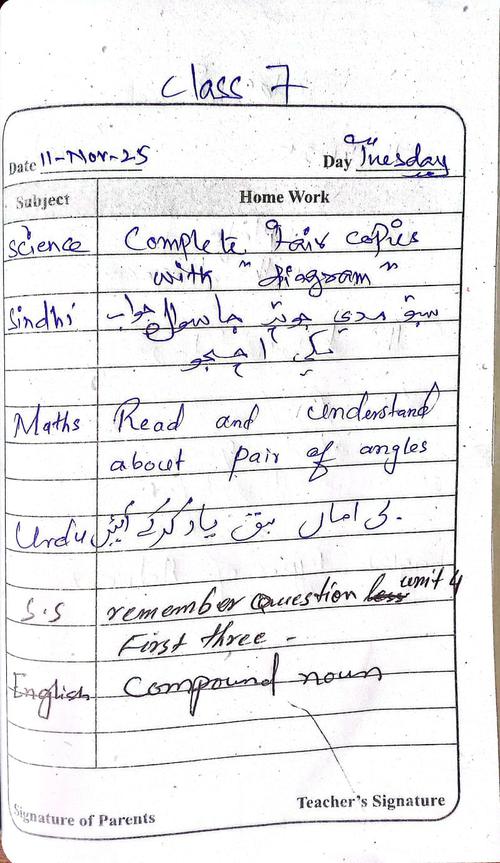 Class 7
Date 11-Nov-25 Day Tuesday
Subject Home Work
Science Complete Fair copies
with "diagram"
Sindhi سبق مدي جوئي جا سوال جواب
لکي اچجو
Maths Read and understand
about pair of angles
Urdu بی اماں سبق یاد کرکے آئیں
S.S remember Question less unit 4
First three -
English Compound noun
Teacher's Signature
Signature of Parents